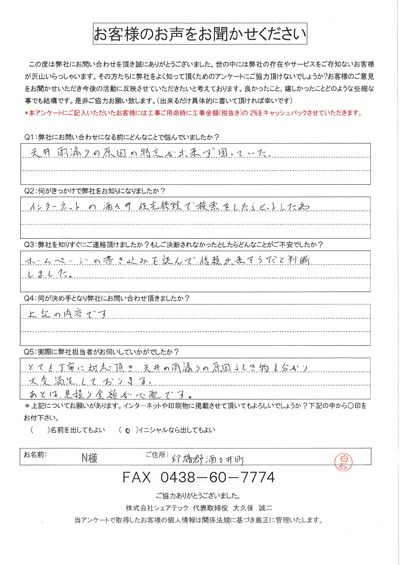 お客様のお声をお聞かせください
この度は弊社にお問い合わせを頂き誠にありがとうございました。世の中には弊社の存在やサービスをご存知ないお客様
が沢山いらっしゃいます。その方たちに弊社をよく知って頂くためのアンケートにご協力頂けないでしょうか?お客様のご意見
をお聞かせいただき今後の活動に反映させていただきたいと考えております。良かったこと、嬉しかったことどのような些細な
事でも結構です。是非ご協力お願い致します。(出来るだけ具体的に書いて頂ければ幸いです)
*本アンケートにご記入いただいたお客様には工事ご用命時に工事金額(税抜き)の2%をキャッシュバックさせていただきます。
Q1:弊社にお問い合わせになる前にどんなことで悩んでいましたか?
天井雨漏りの原因の特定が出来ず困っていた。
Q2:何がきっかけで弊社をお知りになりましたか?
インターネットの酒々井 住宅修理で検索をしたらヒットした為
Q3:弊社を知りすぐにご連絡頂けましたか?もしご決断されなかったとしたらどんなことがご不安でしたか?
ホームページの書き込みを読んで信頼出来そうだと判断
しました。
Q4:何が決め手となり弊社にお問い合わせ頂きましたか?
上記の内容です
Q5:実際に弊社担当者がお伺いしていかがでしたか?
とても丁寧に対応頂き 天井の雨漏りの原因らしき物も分かり
大変満足しております。
あとは見積り金額が心配です。
*上記についてお願いがあります。インターネットや印刷物に掲載させて頂いてもよろしいでしょうか?下記の中から〇印を
お付下さい。
( )名前を出してもよい (〇)イニシャルなら出してもよい
お名前: N様 ご住所: 印旛郡酒々井町 白石
FAX 0438-60-7774
ご協力ありがとうございました。
株式会社シェアテック 代表取締役 大久保 誠二
当アンケートで取得したお客様の個人情報は関係法規に基づき厳正に管理いたします。